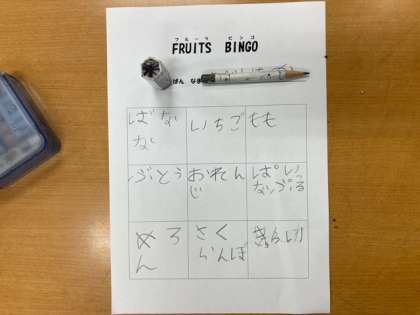 フルーツ ビンゴ
FRUITS BINGO
ばん なま
ばなな
いちご
もも
ぶどう
おれんじ
ぱいなっぷる
めろん
さくらんぼ